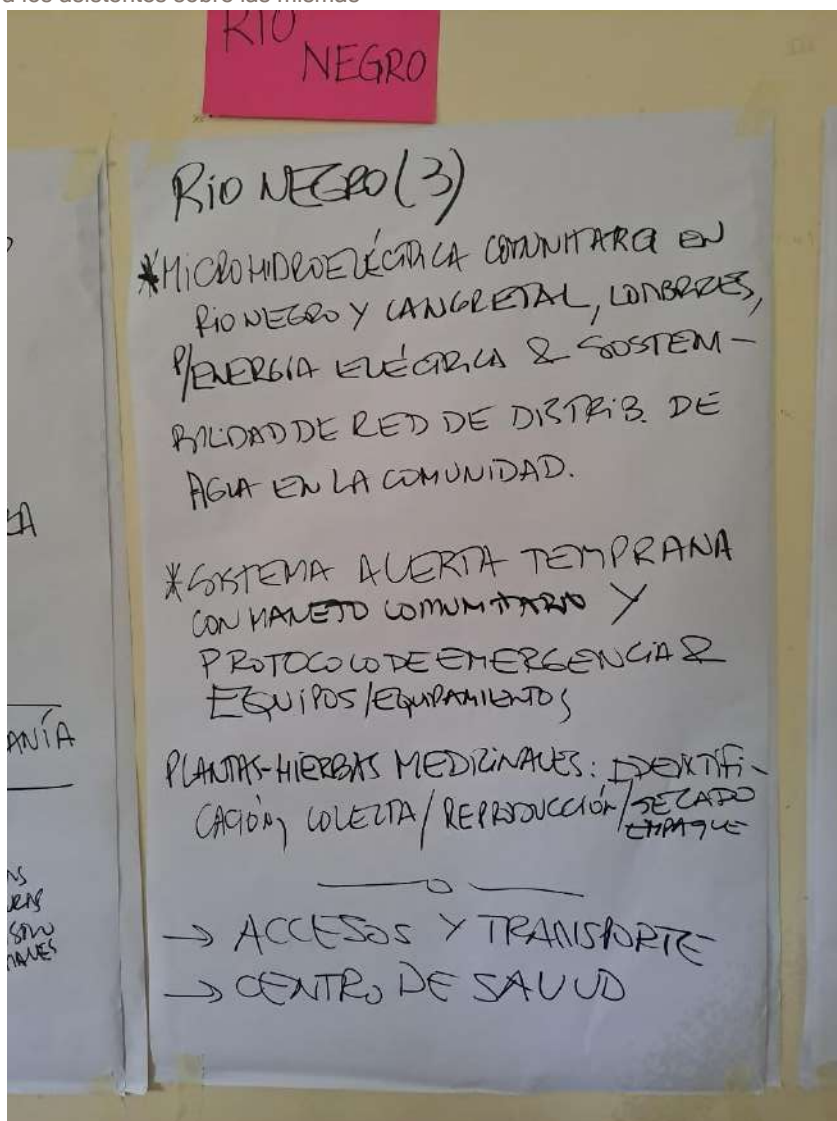 a los asistentes sobre las mismas
RIO
NEGRO
RÍO NEGRO (3)
*MICROHIDROELÉCTRICA COMUNITARIA EN
RIO NEGRO Y CANGREJAL, LOMBRIZES,
P/ENERGÍA ELÉCTRICA & SOSTENI-
BILIDAD DE RED DE DISTRIB. DE
AGUA EN LA COMUNIDAD.
*SISTEMA ALERTA TEMPRANA
CON MANEJO COMUNITARIO Y
PROTOCOLO DE EMERGENCIA &
EQUIPOS/EQUIPAMIENTOS
PLANTAS-HIERBAS MEDICINALES: IDENTIFI-
CACIÓN, COLECTA/REPRODUCCIÓN/SECADO
EMPAQUE
→ ACCESOS Y TRANSPORTE
→ CENTRO DE SALUD
ANÍA